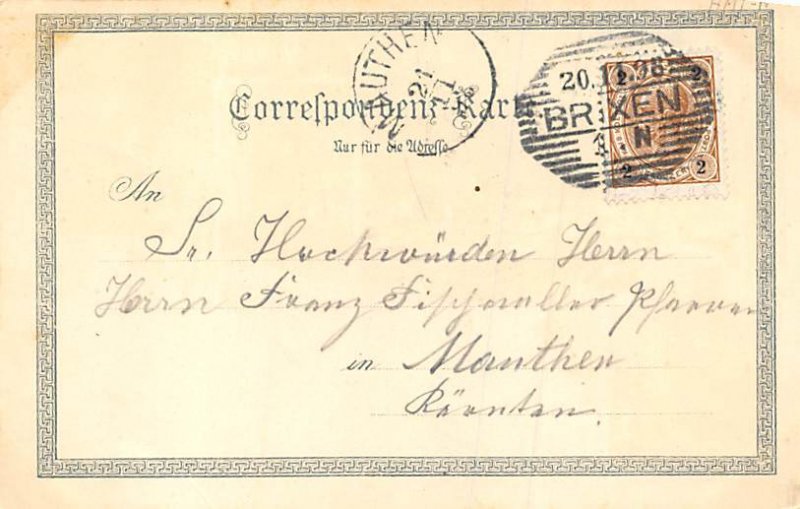 MAUTHEN
21
11
20.11.98
BRIXEN
N
2 2
2 2
Correspondenz-Karte
Nur für die Adresse
An
Sr. Hochwürden Herrn
Herrn Franz Fischmaller Pfarrer
in Mauthen
Kärnten.